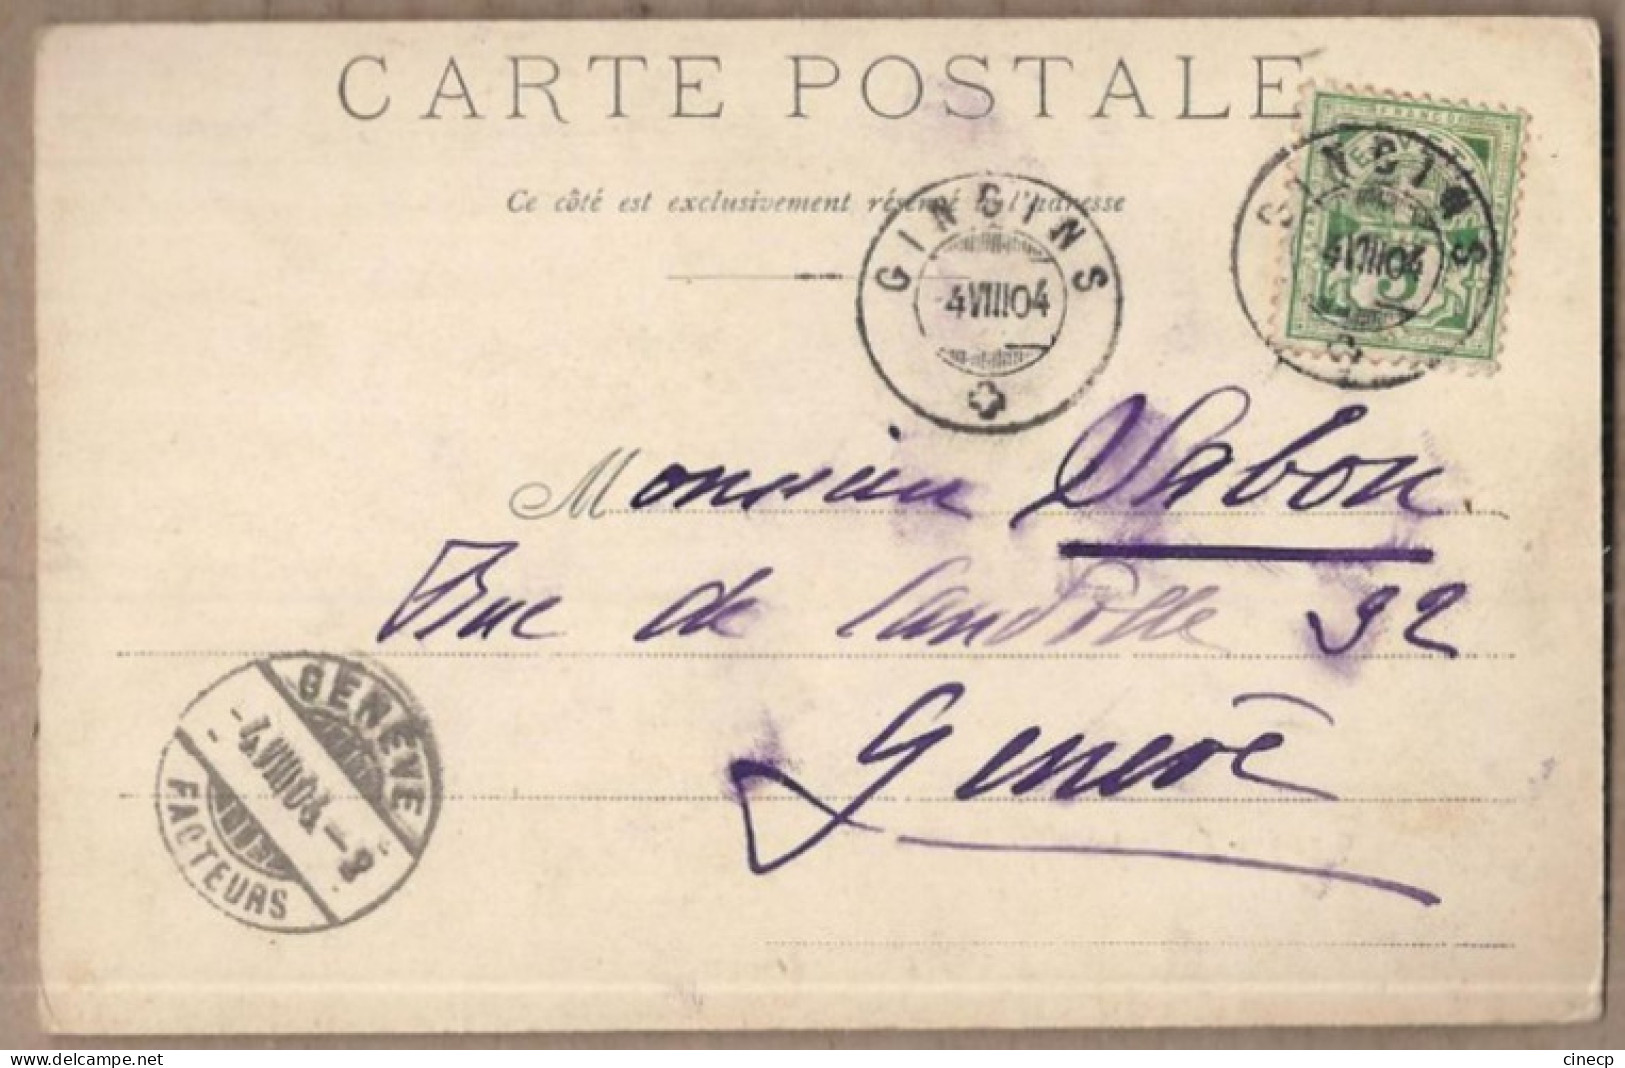 CARTE POSTALE
Ce côté est exclusivement réservé à l'adresse
GINGINS
4 VIII 04
GINGINS
4 VIII 04
FRANCO
5
Monsieur Dabon
Rue de Candolle 32
Genève
GENÈVE
-4.VIII 04-8
FACTEURS
delcampe.net
cinecp